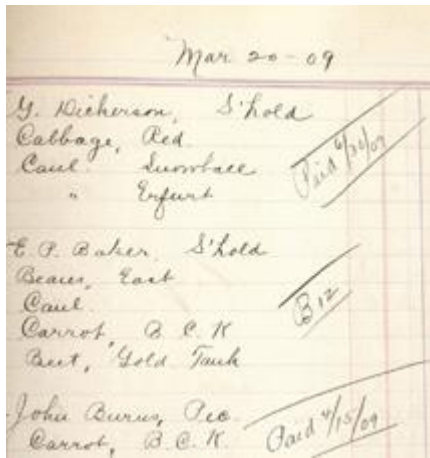 Mar 20-09
G. Dickerson, S'hold
Cabbage, Red
Caul. Snowball
" Erfurt
Paid 6/30/09
E. P. Baker, S'hold
Beans, East
Caul.
B 12
Carrot, B. C. K
Beet, Gold Tank
John Burns, Pec.
Carrot, B.C.K.
Paid 4/15/09